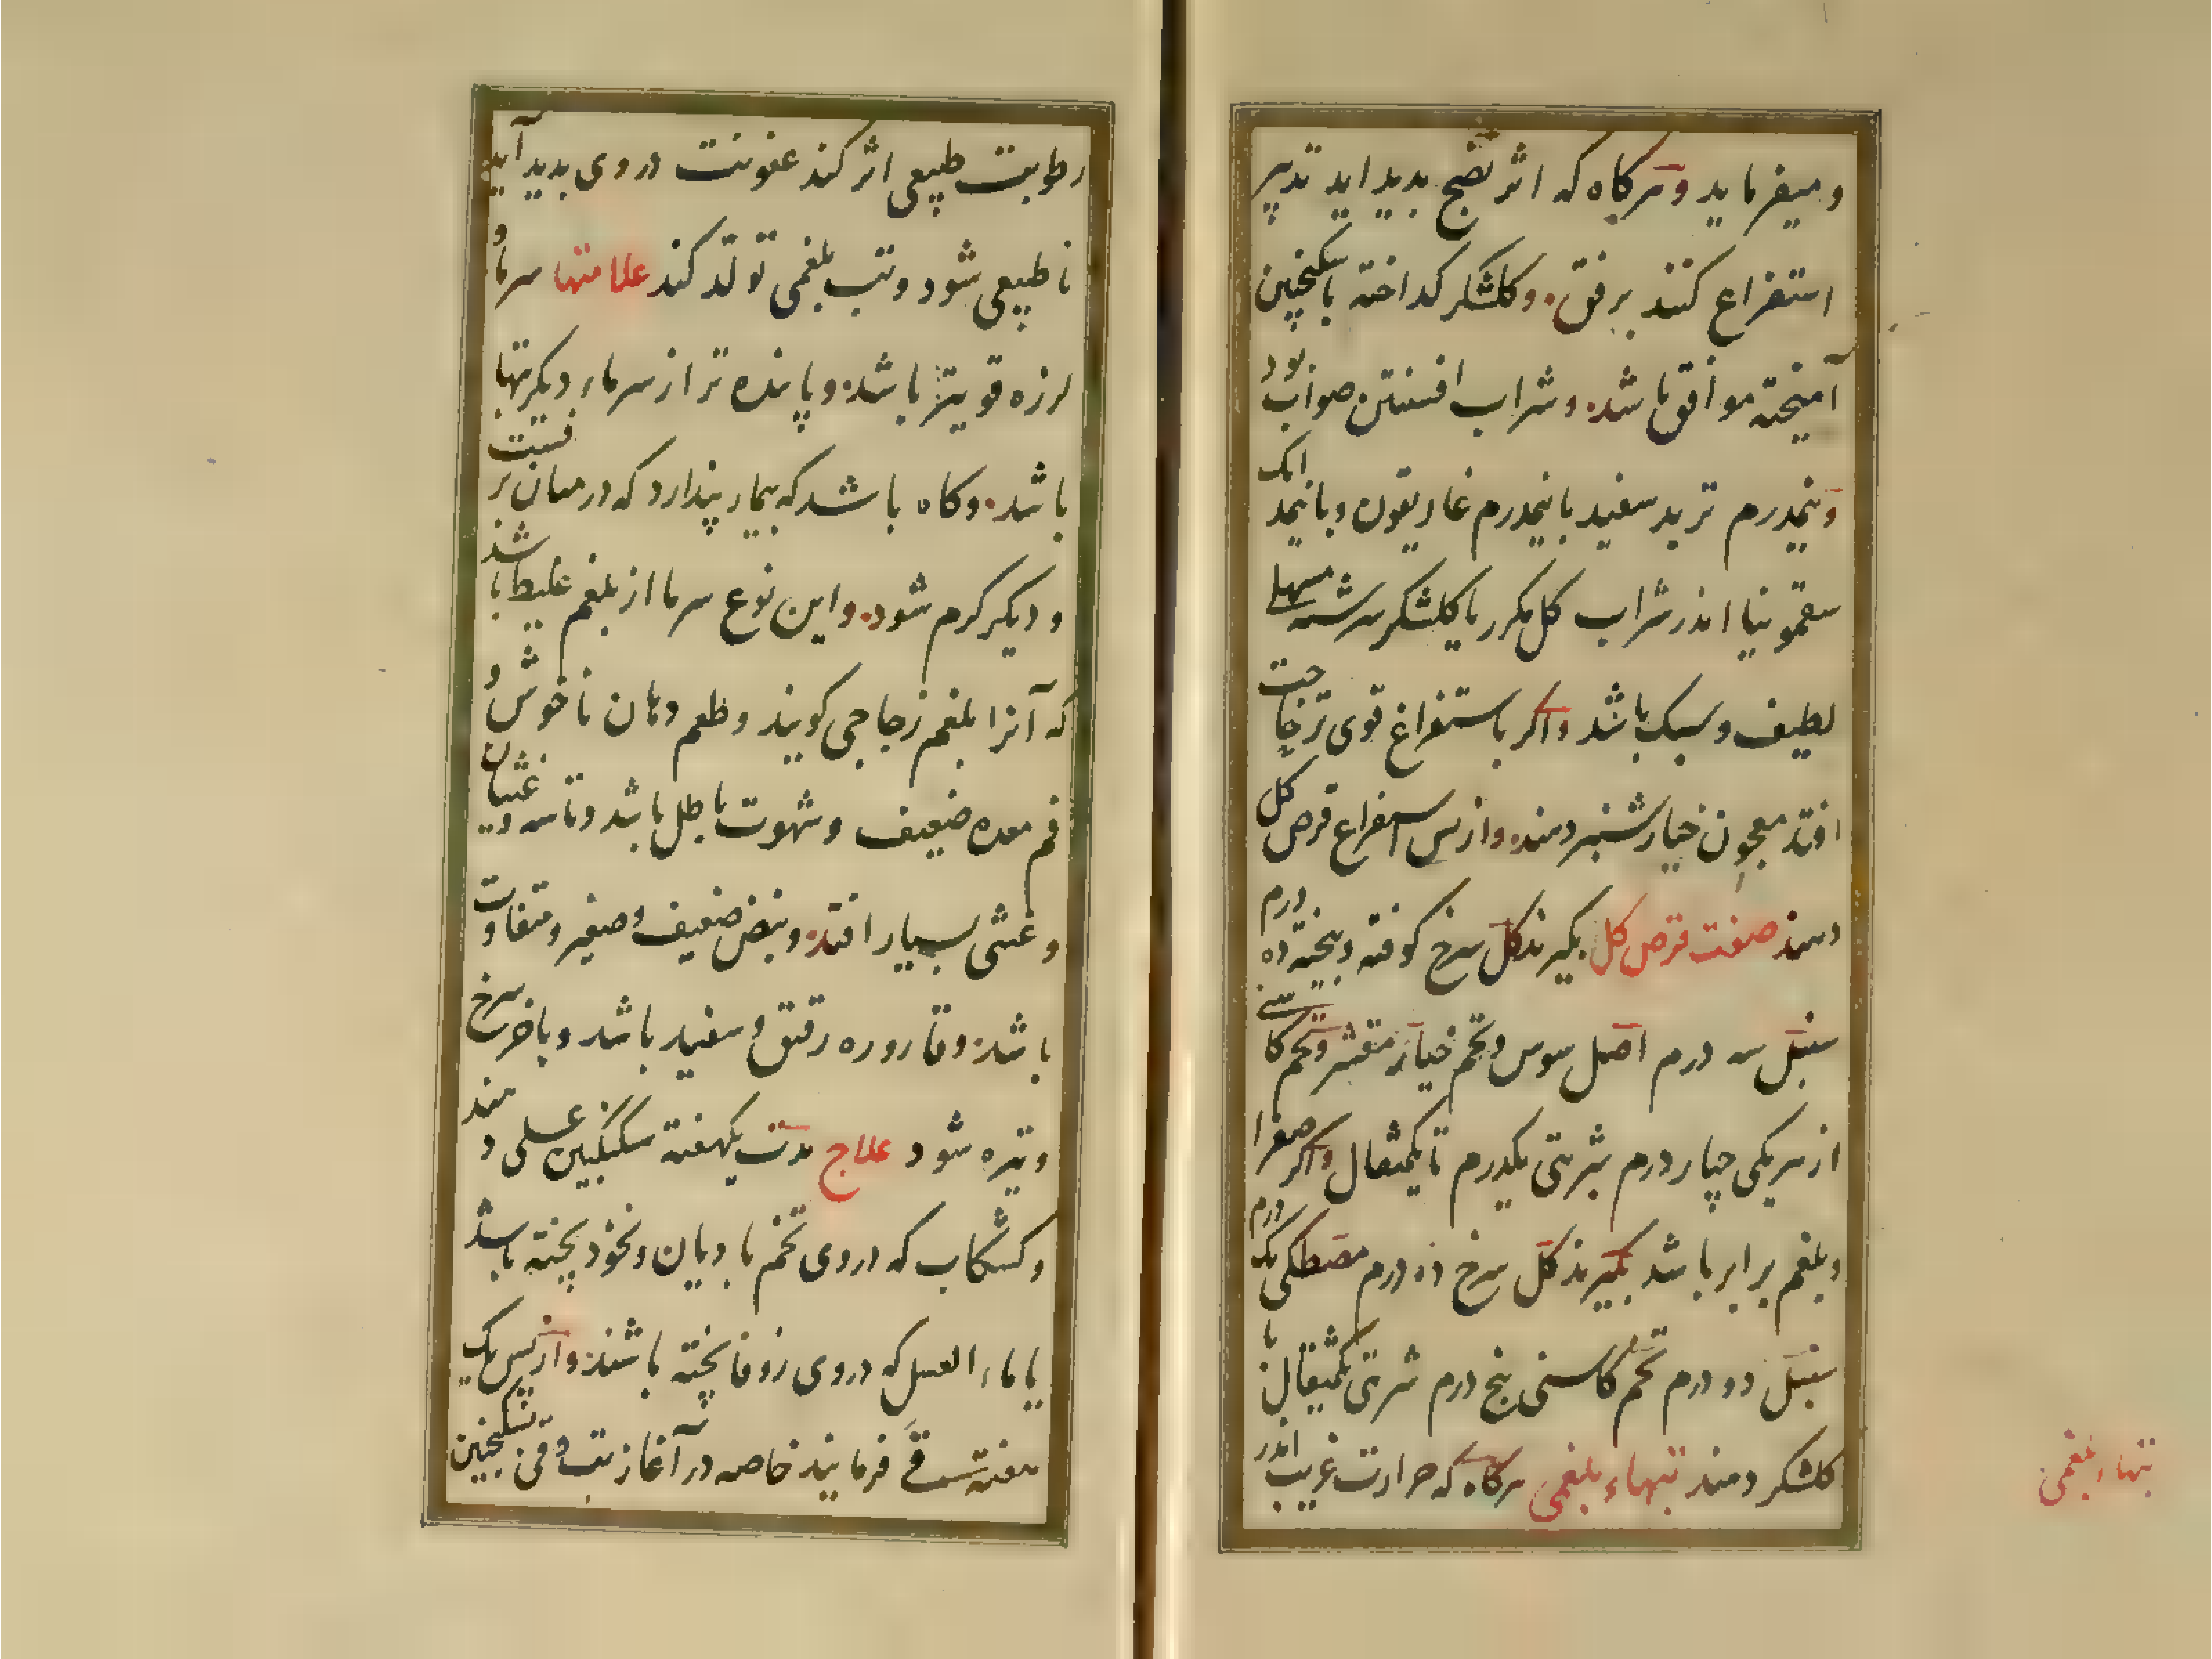 و میفرماید و هرکاه که اثر نضج بدید اید تدبیر
استفراغ کنند برفق و کلشکر کداخته باسکنجبین
آمیخته موافق باشد و شراب افسنتین صواب بود
و نیمدرم تربد سفید با نیمدرم غاریقون و با نیمدانک
سقمونیا اندر شراب کل مکرر یا کلشکر سرشته مسهلی
لطیف و سبک باشد و اکر باستفراغ قوی تر حاجت
افتد معجون خیارشنبر دهند و از بس استفراغ قرص کل
دهند صفت قرص کل بکیرند کل سرخ کوفته و بیخته ده درم
سنبل سه درم اصل سوس و تخم خیار مقشر و تخم کاسنی
از هر یکی چهار درم شربتی یکدرم تا یکمثقال و اکر صفرا
و بلغم برابر باشد بکیرند کل سرخ ده درم مصطکی یک درم
سنبل دو درم تخم کاسنی بنج درم شربتی یکمثقال با
کلشکر دهند تبهاء بلغمی هرکاه که حرارت غریب اندر
تبهاء بلغمی
رطوبت طبیعی اثر کند عفونت در وی بدید آید
ناطبیعی شود و تب بلغمی تولد کند علامتها سرما و
لرزه قویتر باشد و پاینده تر از سرماء دیکر تبها
باشد و کاه باشد که بیمار پندارد که در میان برفست
و دیکر کرم شود و این نوع سرما از بلغم غلیظ باشد
که آنرا بلغم زجاجی کویند و طعم دهان ناخوش و
فم معده ضعیف و شهوت باطل باشد و تاسه و غثیان
و غشی بسیار افتد و نبض ضعیف و صغیر و متفاوت
باشد و قاروره رقیق و سفید باشد و باخر سرخ
و تیره شود علاج مدت یکهفته سکنکبین عسلی دهند
و کشکاب که در وی تخم بادیان و نخود پخته باشد
یا ماء العسل که در وی زوفا پخته باشند و از پس یک
هفته قی فرمایند خاصه در آغاز تب و قی بسکنجبین